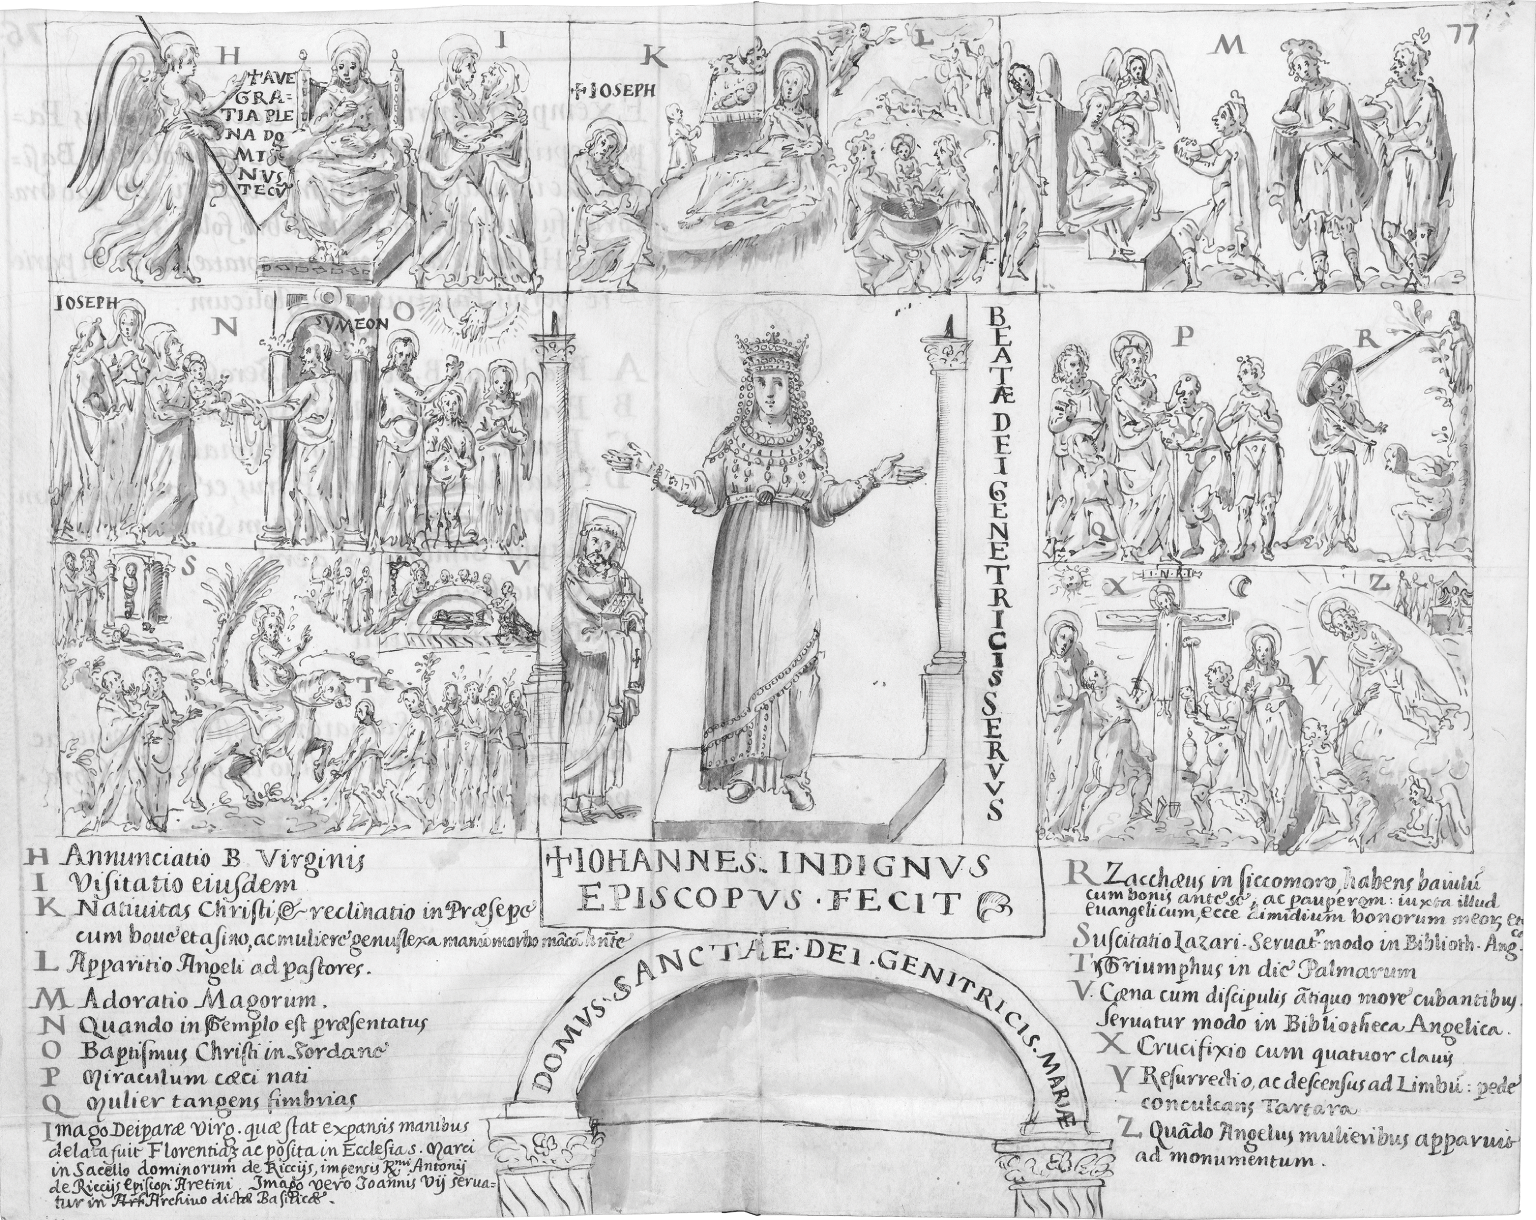 77
H
I
K
L
M
✝AVE
GRA=
TIA PLE
NA DO
MI
NVS
TECV̄
✝IOSEPH
IOSEPH
N
SYMEON
O
P
R
Q
S
V
T
X
I·N·R·I
Z
Y
BEATÆ DEI GENETRICIS SERVVS
✝IOHANNES. INDIGNVS
EPISCOPVS · FECIT
DOMVS·SANCTAE·DEI·GENITRICIS·MARIÆ
H Annunciatio B Virginis
I Visitatio eiusdem
K Nativitas Christi, & reclinatio in Præsepe
cum boue et asino, ac muliere genuflexa manū morbo
L Apparitio Angeli ad pastores.
M Adoratio Magorum.
N Quando in Templo est præsentatus
O Baptismus Christi in Iordane
P Miraculum cæci nati
Q Mulier tangens fimbrias
Imago Deiparæ Virg. quæ stat expansis manibus
delata fuit Florentiā ac posita in Ecclesia S. Marci
in Sacello dominorum de Riccijs, impensis Rmi. Antonij
de Riccijs Episcopi Aretini. Imago vero Ioannis Vij serua=
tur in Archivo dictæ Basilicæ.
R Zacchæus in siccomoro, habens baiulū
cum bonis ante se, ac pauperem: iuxta illud
euangelicum, ecce dimidium bonorum meorͫ
Suscitatio Lazari. Seruatr modo in Biblioth. Ang.
T Triumphus in die Palmarum
V. Cæna cum discipulis ātiquo more cubantibus.
Seruatur modo in Bibliotheca Angelica.
X Crucifixio cum quatuor clauis
Y Resurrectio, ac descensus ad Limbū: pede
conculcans Tartara
Z Quādo Angelus mulieribus apparuit
ad monumentum.